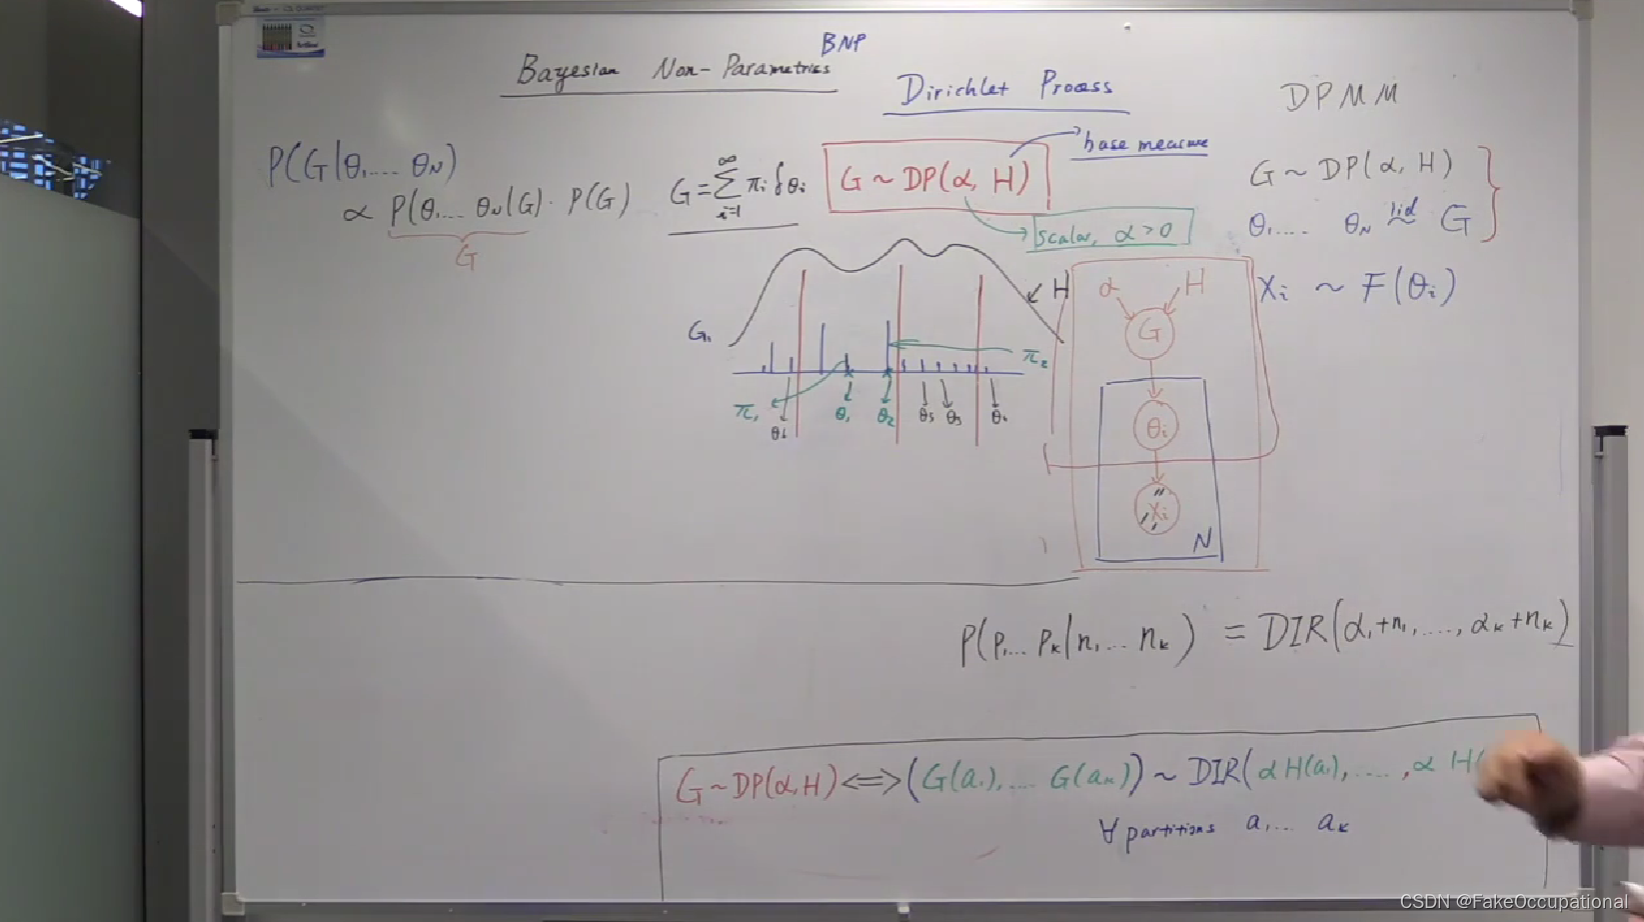 Bayesian Non-Parametrics BNP
Dirichlet Process
DPMM
P(G|θ₁.... θ_N)
∝ P(θ₁.... θ_N|G) · P(G)
G
G = Σ_{i=1}^{∞} π_i δ_{θ_i}
G ~ DP(α, H)
base measure
scalar, α > 0
G ~ DP(α, H)
θ₁.... θ_N iid ~ G
X_i ~ F(θ_i)
H
G₁
π₁
π₂
θ₆ θ₁ θ₂ θ₅ θ₃
α H
G
θ_i
X_i
N
P(P₁... P_k|n₁... n_k) = DIR(α₁+n₁, ...., α_k+n_k)
G ~ DP(α, H) <=> (G(a₁), .... G(a_k)) ~ DIR(αH(a₁), ...., α H(
∀ partitions a₁... a_k
CSDN @FakeOccupational